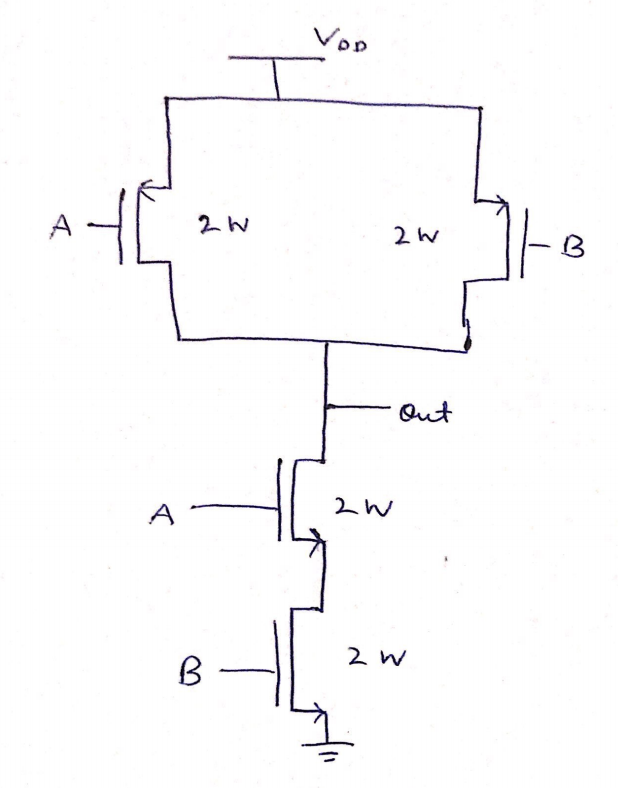 VDD
A 2W 2W B
Out
A 2W
B 2W